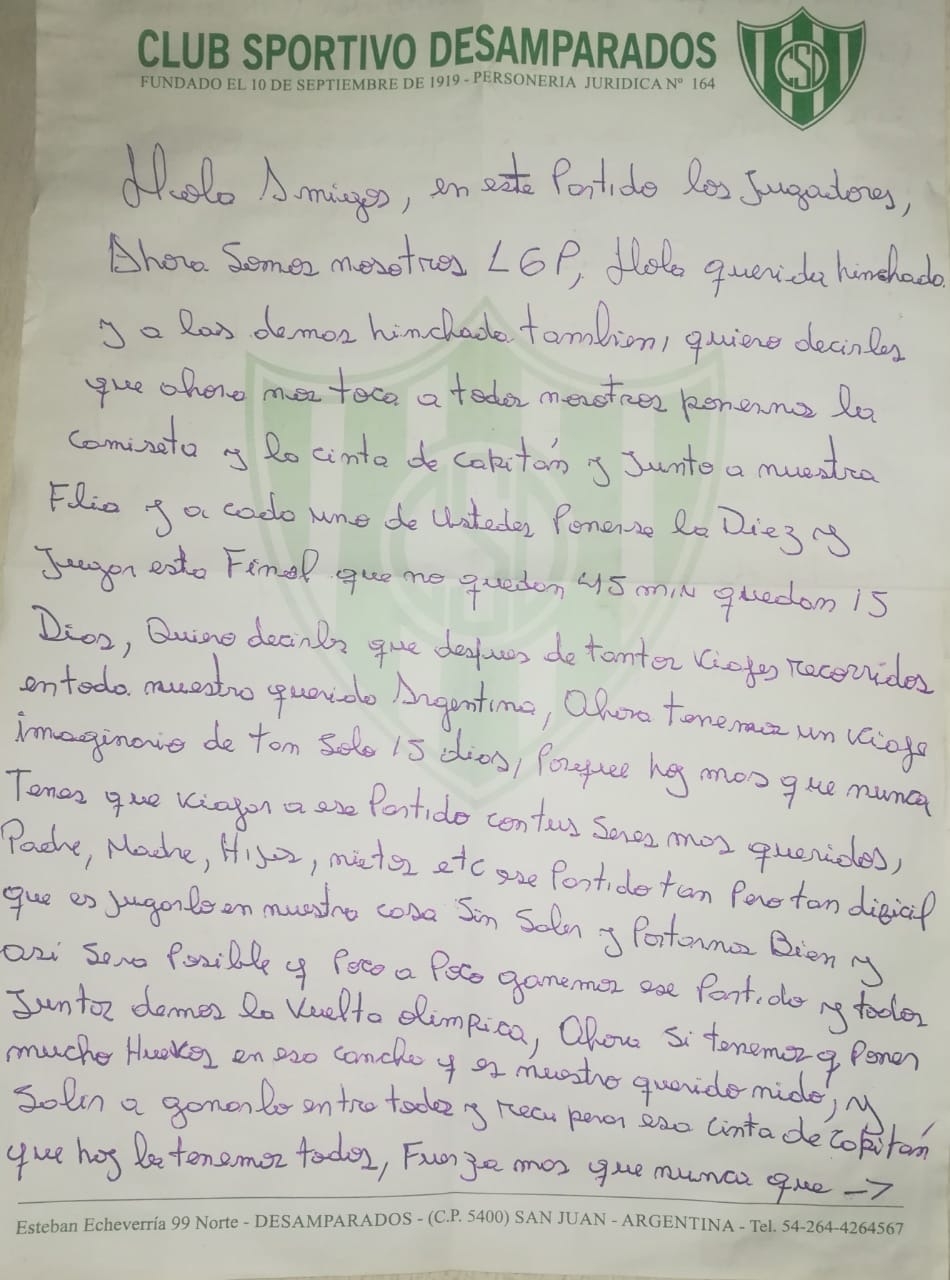 CLUB SPORTIVO DESAMPARADOS
FUNDADO EL 10 DE SEPTIEMBRE DE 1919 - PERSONERIA JURIDICA Nº 164
CSD
Hola Amigos, en este Partido los Jugadores,
Ahora Somos nosotros LGP, Hola querida hinchada.
y a las demas hinchada tambien, quiero decirles
que ahora nos toca a todos nosotros ponernos la
Camiseta y la cinta de Capitán y Junto a nuestra
Flia y a cada uno de Ustedes Ponerse la Diez y
Jugar esta Final que no quedan 45 min quedan 15
Dias, Quiero decirles que despues de tantos Viajes recorridos
en toda nuestra querida Argentina, Ahora tenemos un Viaje
imaginario de tan Solo 15 dias, Porque hoy mas que nunca
Tenes que viajar a ese Partido con tus Seres mas queridos,
Padre, Madre, Hijos, nietos etc ese Partido tan Pero tan dificil
que es jugarlo en nuestra casa Sin Salir y Portarnos Bien y
asi Sera Posible q Poco a Poco ganemos ese Partido y todos
Juntos demos la Vuelta olimpica, Ahora Si tenemos q Poner
mucho Huevos en esa cancha q es nuestro querido nido, y
Salir a ganarlo entre todos y recuperar esa Cinta de Capitán
que hoy la tenemos todos, Fuerza mas que nunca que →
Esteban Echeverría 99 Norte - DESAMPARADOS - (C.P. 5400) SAN JUAN - ARGENTINA - Tel. 54-264-4264567